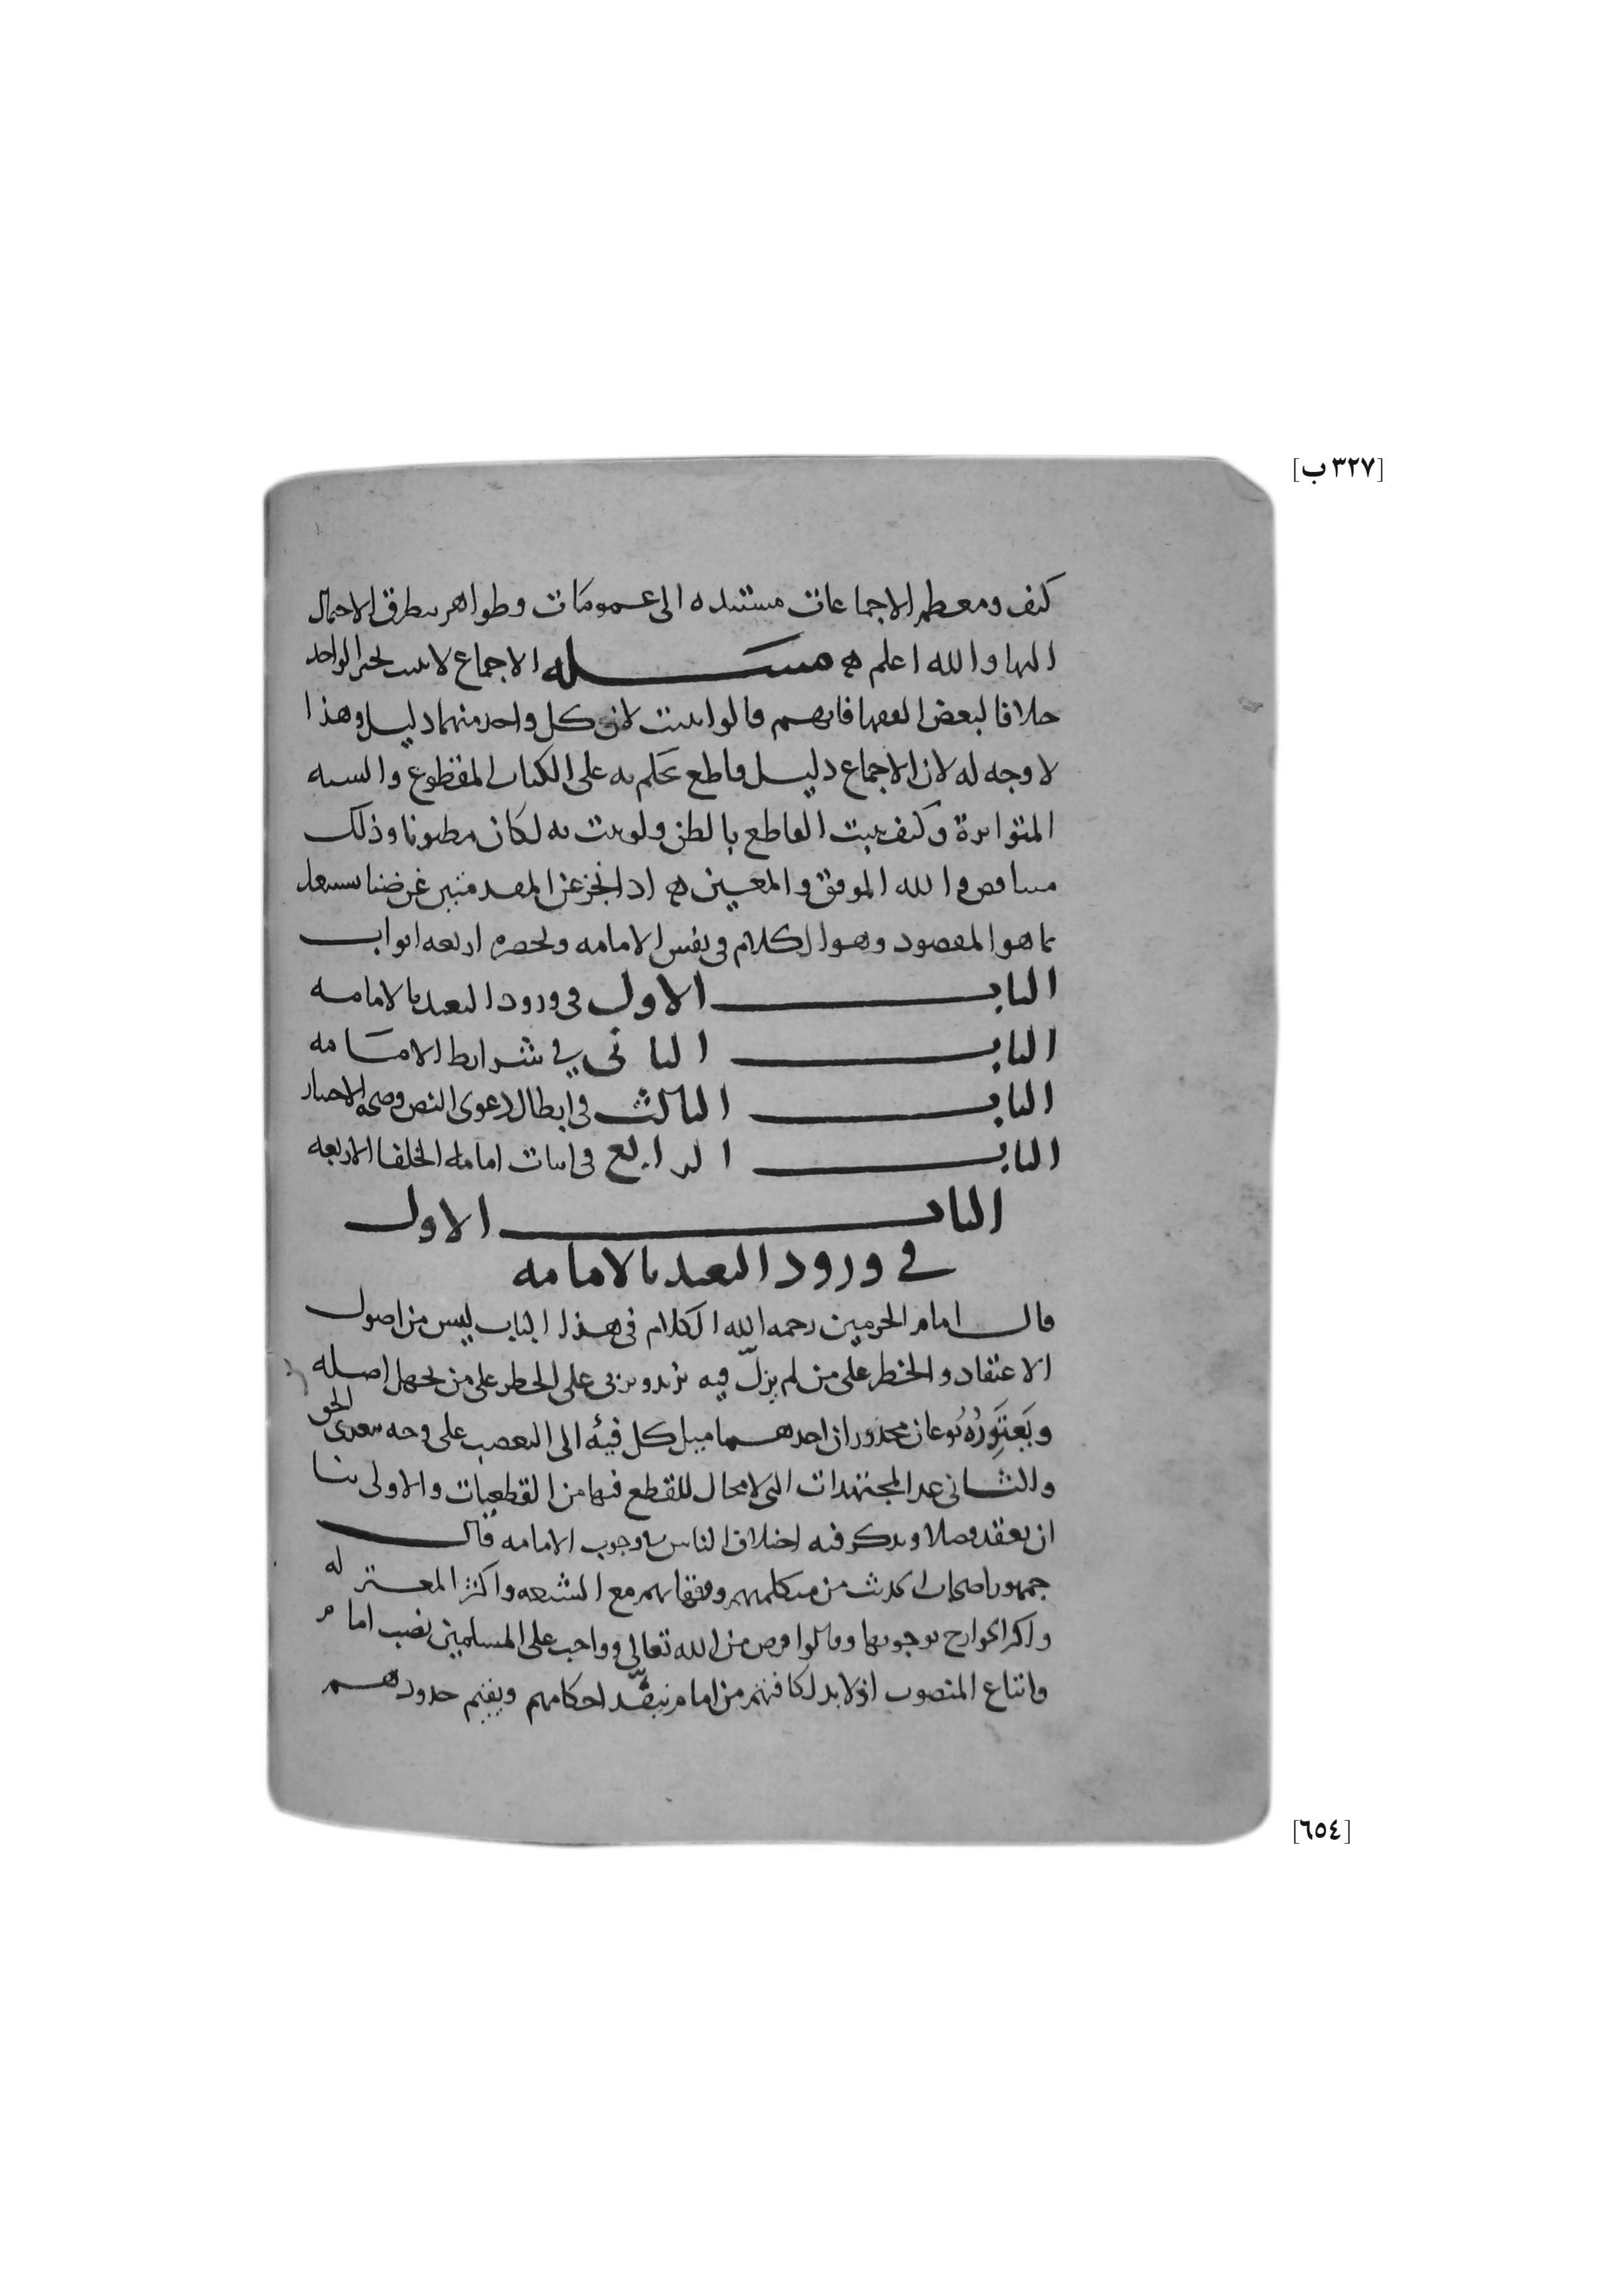 [٣٢٧ ب]
كيف ومعظم الاجماعات مستنده الى عمومات وظواهر يتطرق الاحتمال
اليها والله اعلم ه مسئله الاجماع لا يثبت بخبر الواحد
خلافا لبعض الفقها فانهم قالوا يثبت لان كل واحد منهما دليل وهذا
لا وجه له لان الاجماع دليل قاطع يحكم به على الكتاب المقطوع والسنه
المتواترة وكيف يثبت القاطع بالظن ولو ثبت به لكان مظنونا وذلك
متناقض والله الموفق والمعين ه اذا نجز عن المقدمتين غرضنا نشتغل
بما هو المقصود وهو الكلام في نفس الامامه ويحصره اربعه ابواب
الباب الاول في ورود التعبد بالامامه
الباب الثاني في شرايط الامامه
الباب الثالث في ابطال دعوى النص وصحه الاختيار
الباب الرابع في اثبات امامه الخلفا الاربعه
الباب الاول
في ورود التعبد بالامامه
قال امام الحرمين رحمه الله الكلام في هذا الباب ليس من اصول
الاعتقاد والخطر على من لم يزلّ فيه يزيد ويربى على الخطر على من يجهل اصله
ويَعتَوِرُهُ نوعان محذوران احدهما ميل كل فيئه الى التعصب على وجه تعدى الحق
والثانى عد المجتهدات التي لا مجال للقطع فيها من القطعيات والاولى بنا
ان نعقد فصلا ونذكر فيه اختلاف الناس في وجوب الامامه قال
جمهور اصحاب الحديث من متكلميهم وفقهائهم مع الشيعه واكثر المعتزله
واكثر الخوارج بوجوبها وقالوا فرض من الله تعالى وواجب على المسلمين نصب امام
واتباع المنصوب اذ لا بد لكافتهم من امام ينفّذ احكامهم ويقيم حدودهم
[٦٥٤]